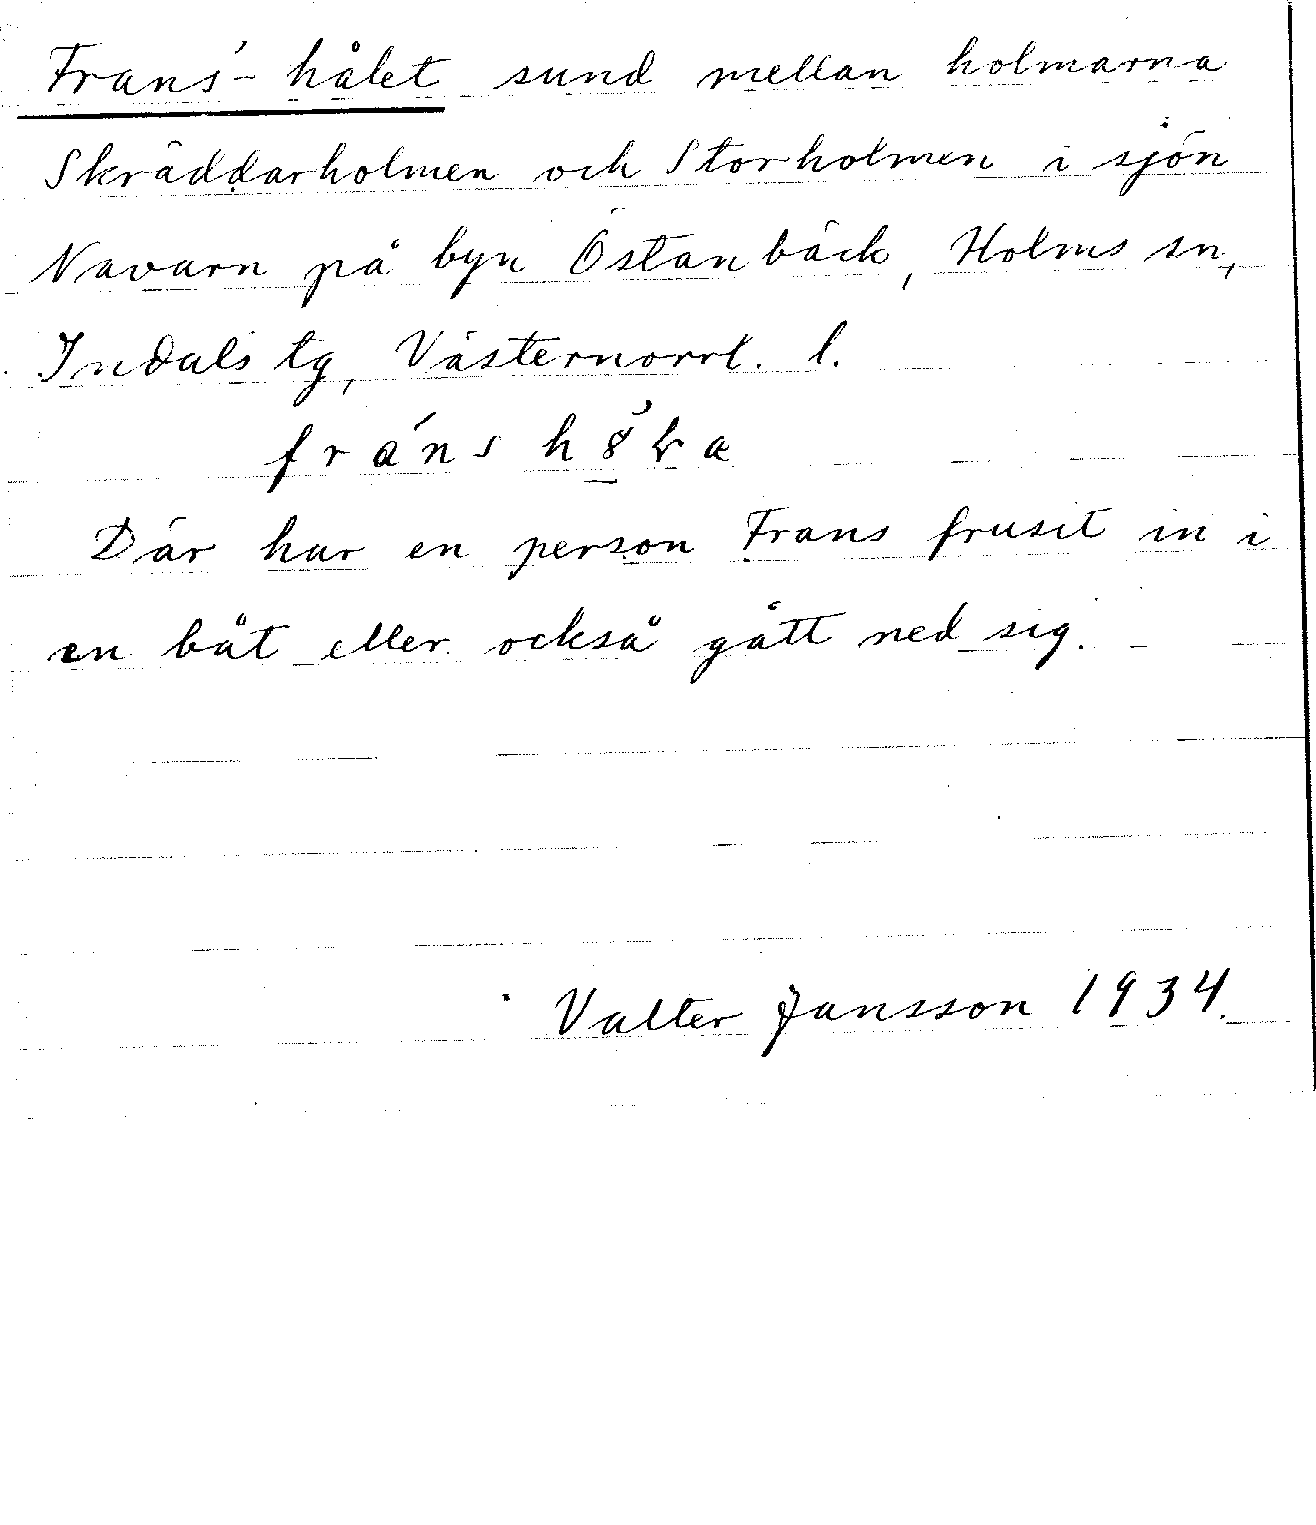 Frans'-hålet sund mellan holmarna
Skräddarholmen och Storholmen i sjön
Navarn på byn Östanbäck, Holms sn,
Indals tg, Västernorrl. l.
Där har en person Frans frusit in i
en båt eller också gått ned sig.
Valter Jansson 1934.